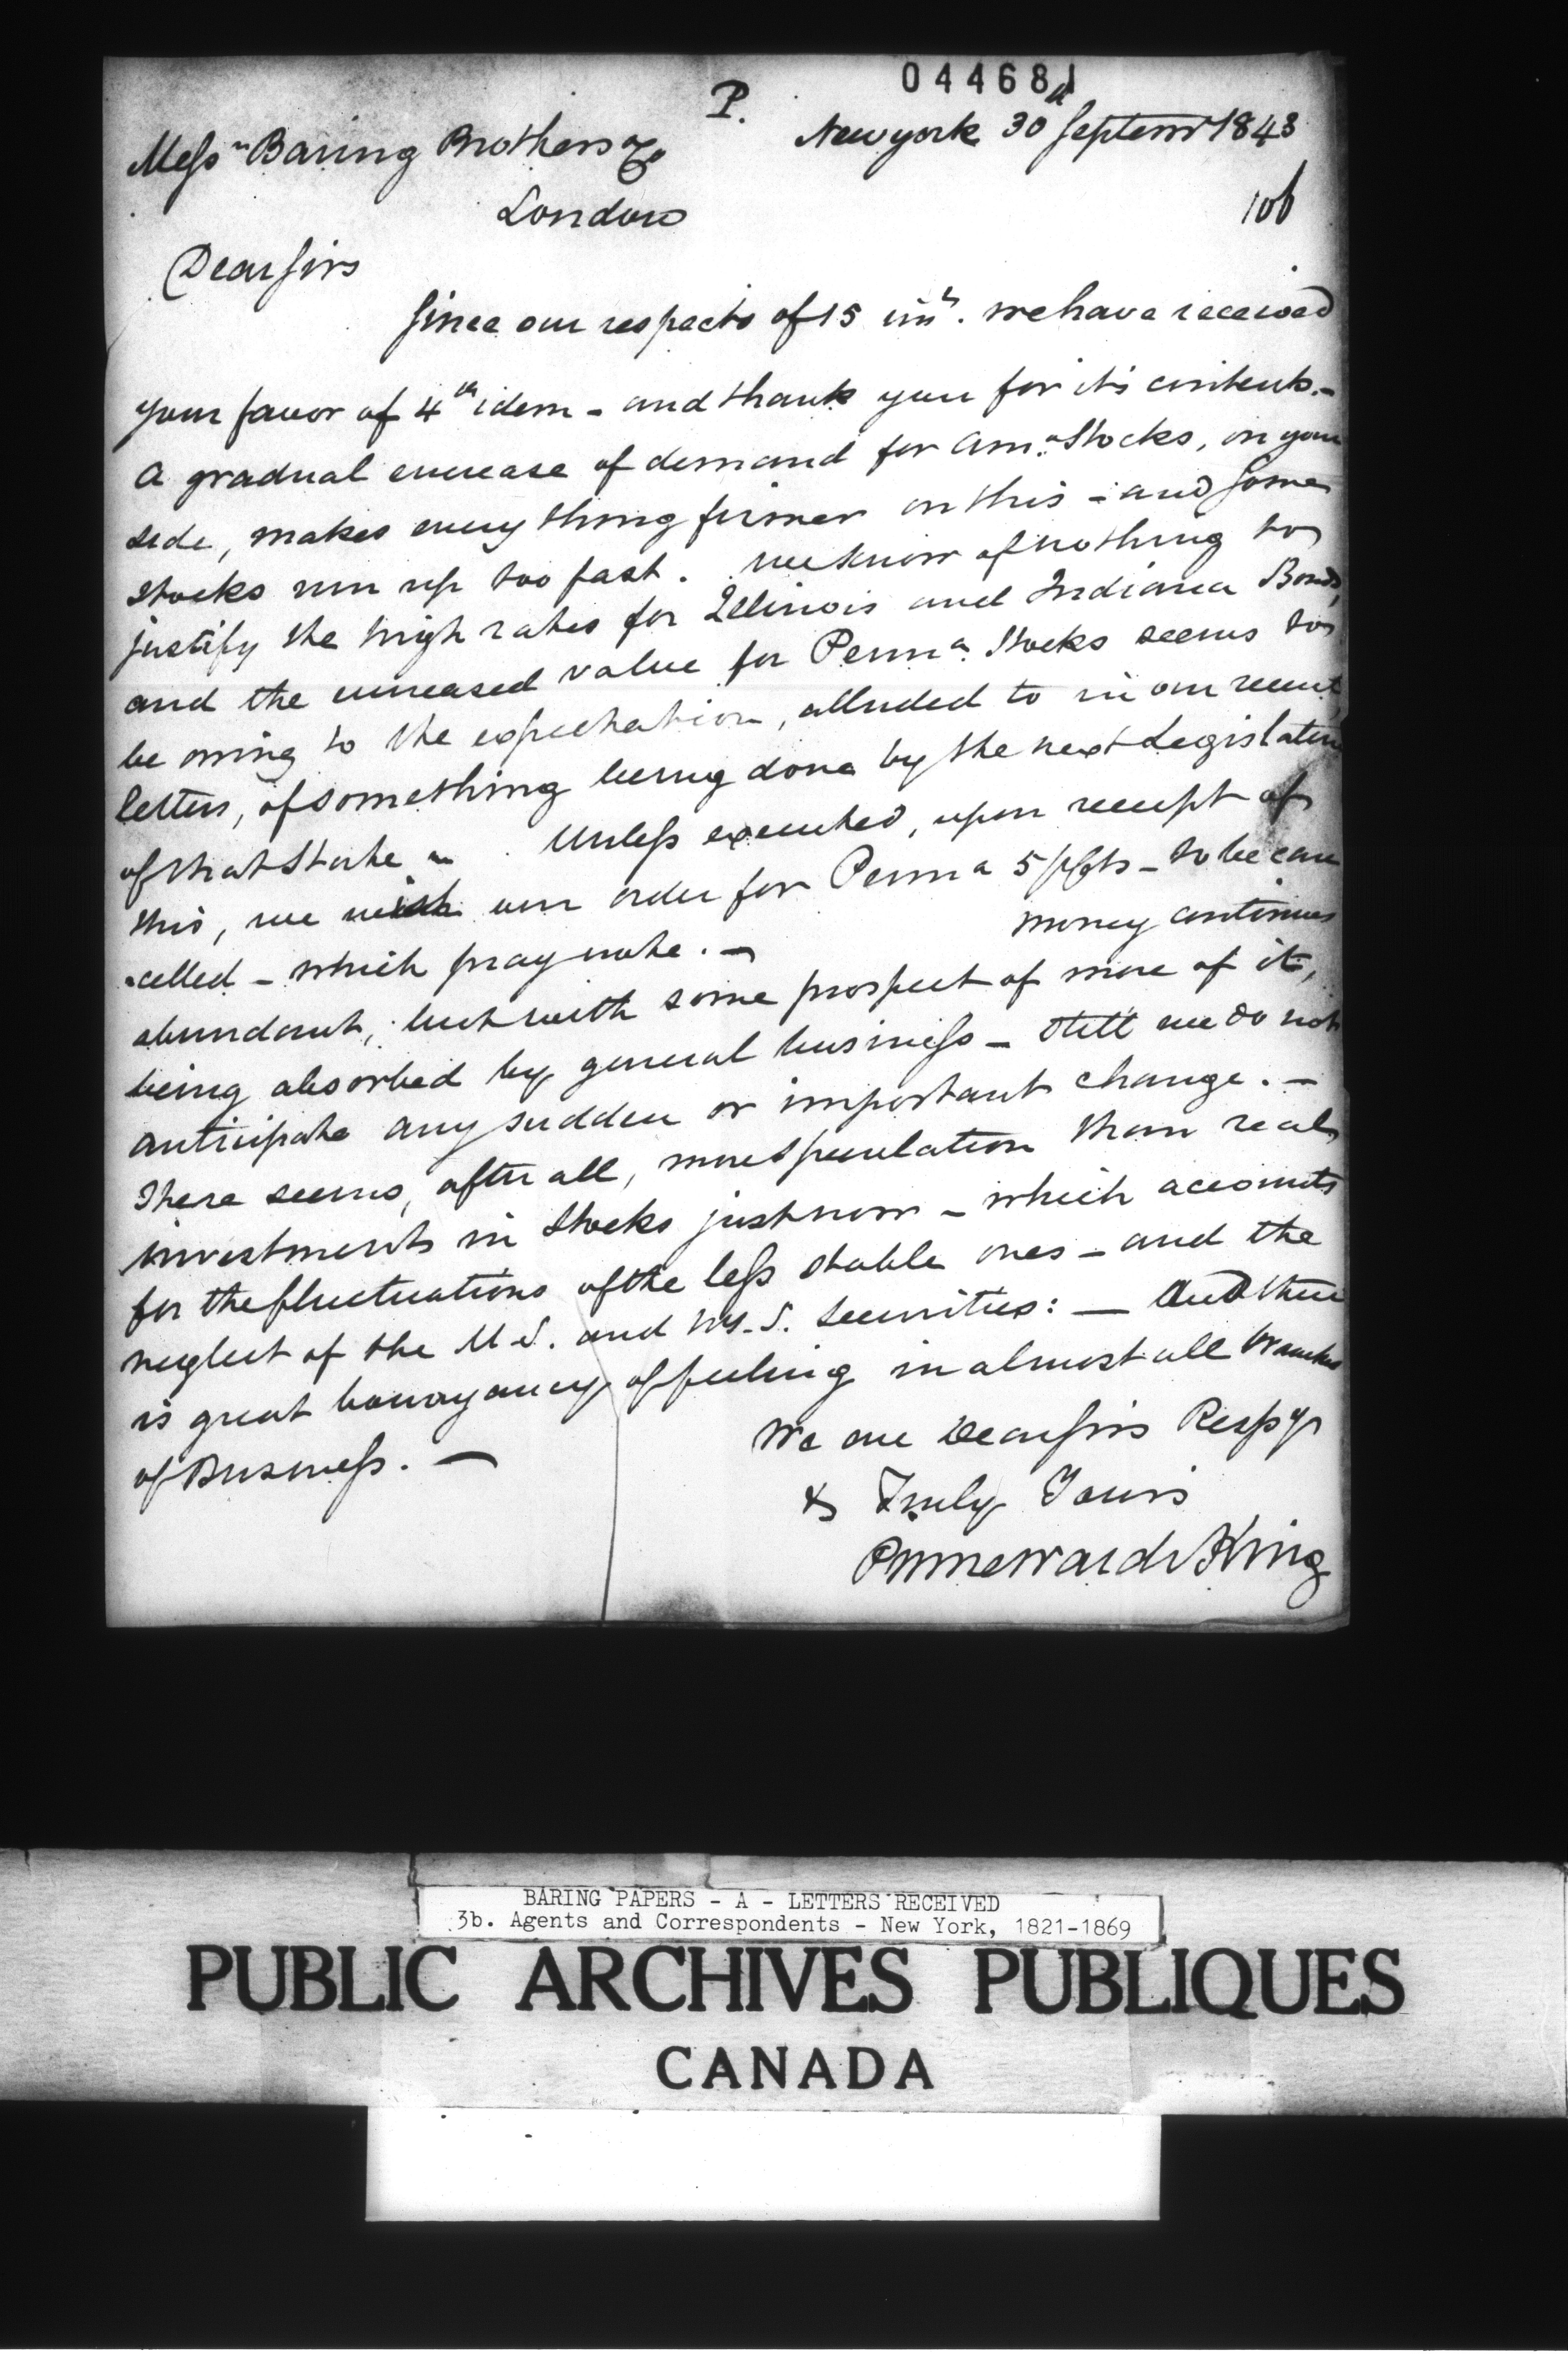 044681
P.
New york 30th Septemr 1843
Messrs Baring Brothers & Co
London
106
Dear Sirs
Since our respects of 15 inst. we have received
your favor of 4th idem - and thank you for it's contents.-
A gradual encrease of demand for Ama. Stocks, on your
side, makes every thing firmer on this - and some
stocks run up too fast. We know of nothing to
justify the high rates for Illinois and Indiana Bonds,
and the increased value for Penna. Stocks seems to
be owing to the expectation, alluded to in our recent
letters, of something being done by the next Legislature
of that State - Unless executed, upon receipt of
this, we wish our order for Penna 5 pCts - to be can
-celled - which pray note. -
Money continues
abundant, but with some prospect of more of it,
being absorbed by general business - still we do not
anticipate any sudden or important change. -
There seems, after all, more speculation than real
investments in Stocks just now - which accounts
for the fluctuations of the less stable ones - and the
neglect of the U.S. and N.Y.S. Securities: - And there
is great bouoyancy of feeling in almost all branches
of Business. -
We are Dear Sirs Respy
& Truly Yours
Prime Ward & King
BARING PAPERS - A - LETTERS RECEIVED
3b. Agents and Correspondents - New York, 1821-1869
PUBLIC ARCHIVES PUBLIQUES
CANADA